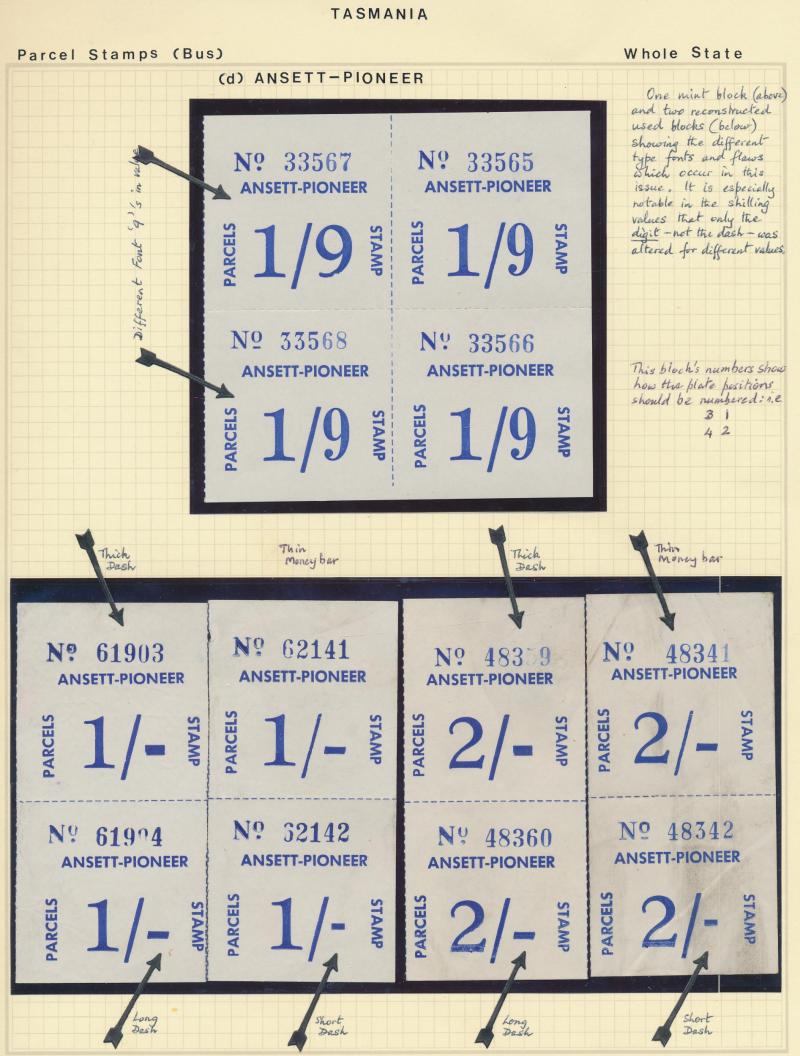 TASMANIA
Parcel Stamps (Bus)
Whole State
(d) ANSETT-PIONEER
One mint block (above)
and two reconstructed
used blocks (below)
showing the different
type fonts and flaws
which occur in this
issue. It is especially
notable in the shilling
values that only the
digit - not the dash - was
altered for different values.
Different Font '9's in value
Nº 33567
ANSETT-PIONEER
PARCELS
1/9
STAMP
Nº 33565
ANSETT-PIONEER
PARCELS
1/9
STAMP
Nº 33568
ANSETT-PIONEER
PARCELS
1/9
STAMP
Nº 33566
ANSETT-PIONEER
PARCELS
1/9
STAMP
This block's numbers show
how the plate positions
should be numbered: i.e
3 1
4 2
Thick
Dash
Thin
Money bar
Thick
Dash
Thin
Money bar
Nº 61903
ANSETT-PIONEER
PARCELS
1/-
STAMP
Nº 62141
ANSETT-PIONEER
PARCELS
1/-
STAMP
Nº
ANSETT-PIONEER
PARCELS
2/-
STAMP
Nº 48341
ANSETT-PIONEER
PARCELS
2/-
STAMP
Nº 61904
ANSETT-PIONEER
PARCELS
1/-
STAMP
Nº 62142
ANSETT-PIONEER
PARCELS
1/-
STAMP
Nº 48360
ANSETT-PIONEER
PARCELS
2/-
STAMP
Nº 48342
ANSETT-PIONEER
PARCELS
2/-
STAMP
Long
Dash
Short
Dash
Long
Dash
Short
Dash